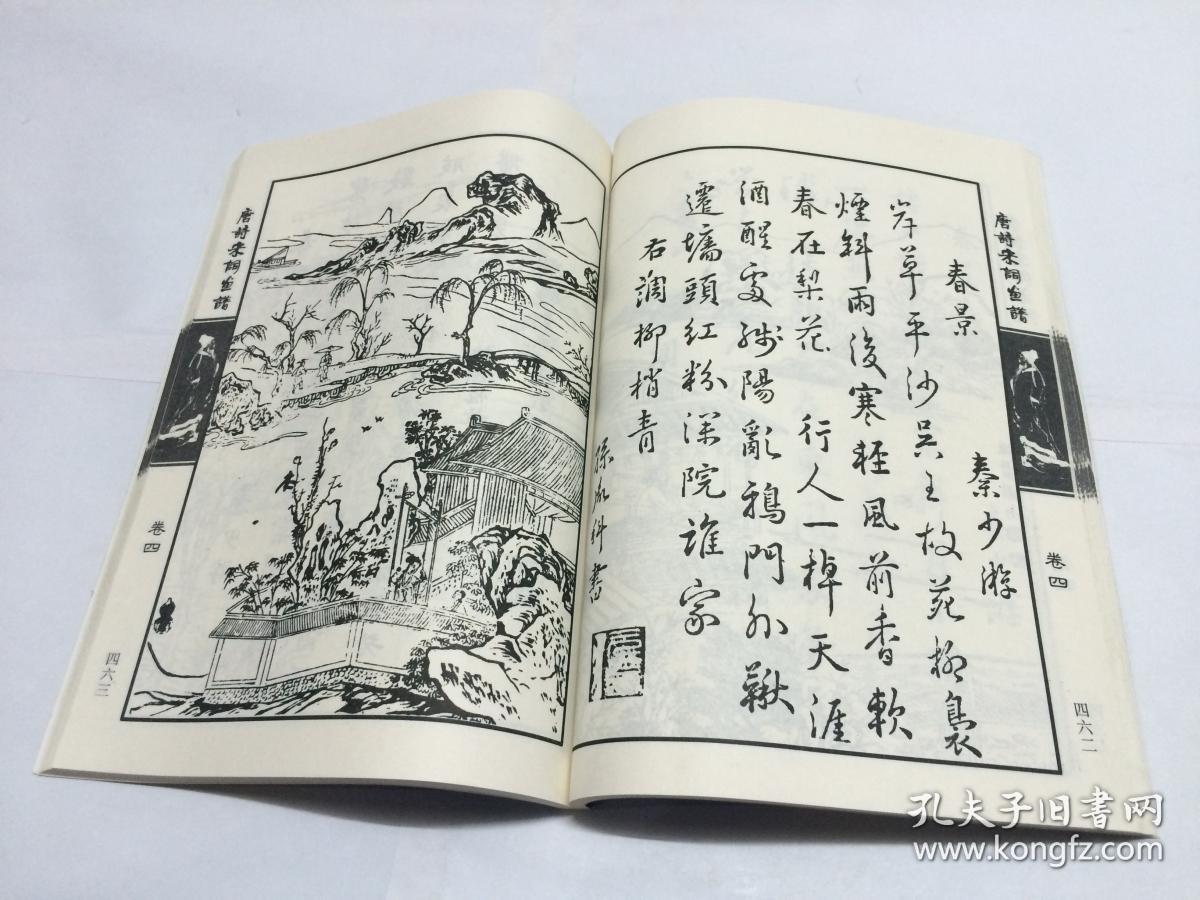 唐詩宋詞畫譜
卷四
四六二
春景
秦少游
岸草平沙吳王故苑柳裊
煙斜雨後寒輕風前香軟
春在梨花 行人一棹天涯
酒醒處殘陽亂鴉門外鞦
遷墻頭紅粉深院誰家
右調柳梢青
孫 書
唐詩宋詞畫譜
卷四
四六三
孔夫子旧书网
www.kongfz.com